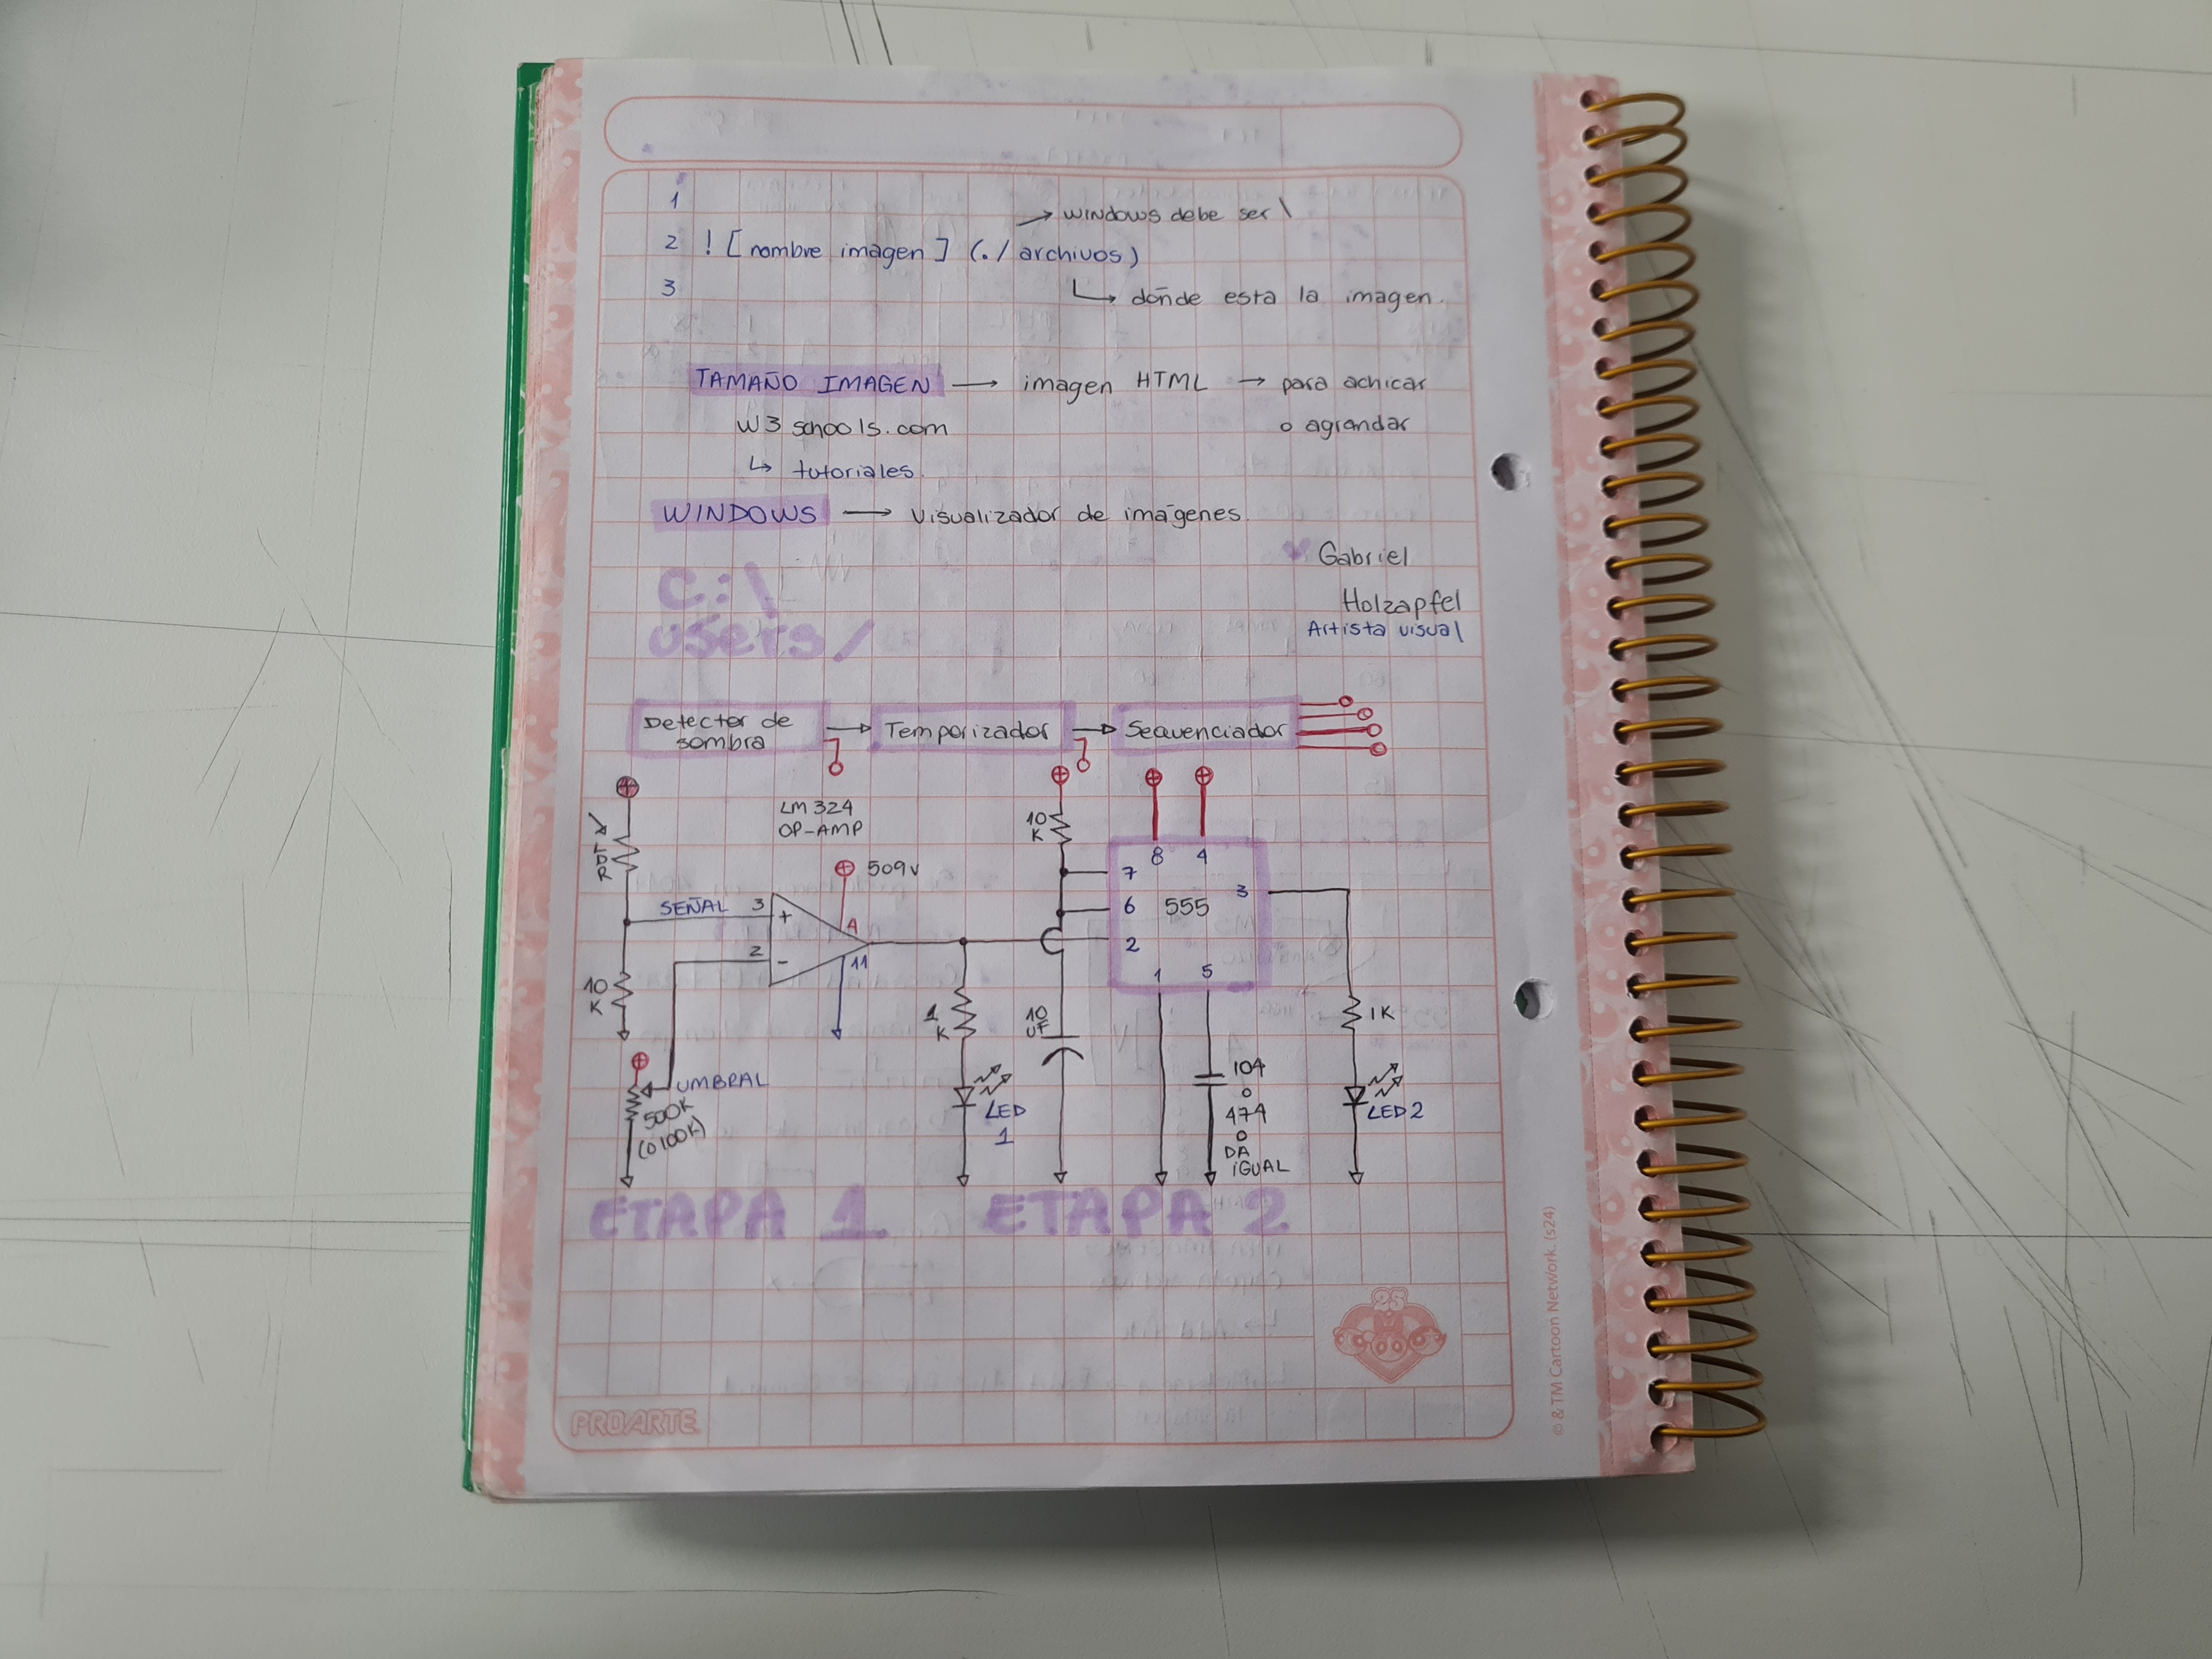 1
→ windows debe ser \
2 ! [nombre imagen] (./archivos)
3
↳ dónde esta la imagen.
TAMAÑO IMAGEN → imagen HTML → para achicar
o agrandar
W3 schools.com
↳ tutoriales.
WINDOWS → visualizador de imágenes.
Gabriel
Holzapfel
Artista visual
C:\
users/
Detector de
sombra → Temporizador → Sequenciador
LM324
OP-AMP
509V
SEÑAL 3
+
4
2
-
11
10
K
UMBRAL
500K
(o 100K)
1
K
LED
1
10
K
10
UF
8 4
7
6 555
3
2
1 5
104
o
474
o
DA
IGUAL
1K
LED 2
ETAPA 1 ETAPA 2
25
PROARTE
© & TM Cartoon Network. (s24)